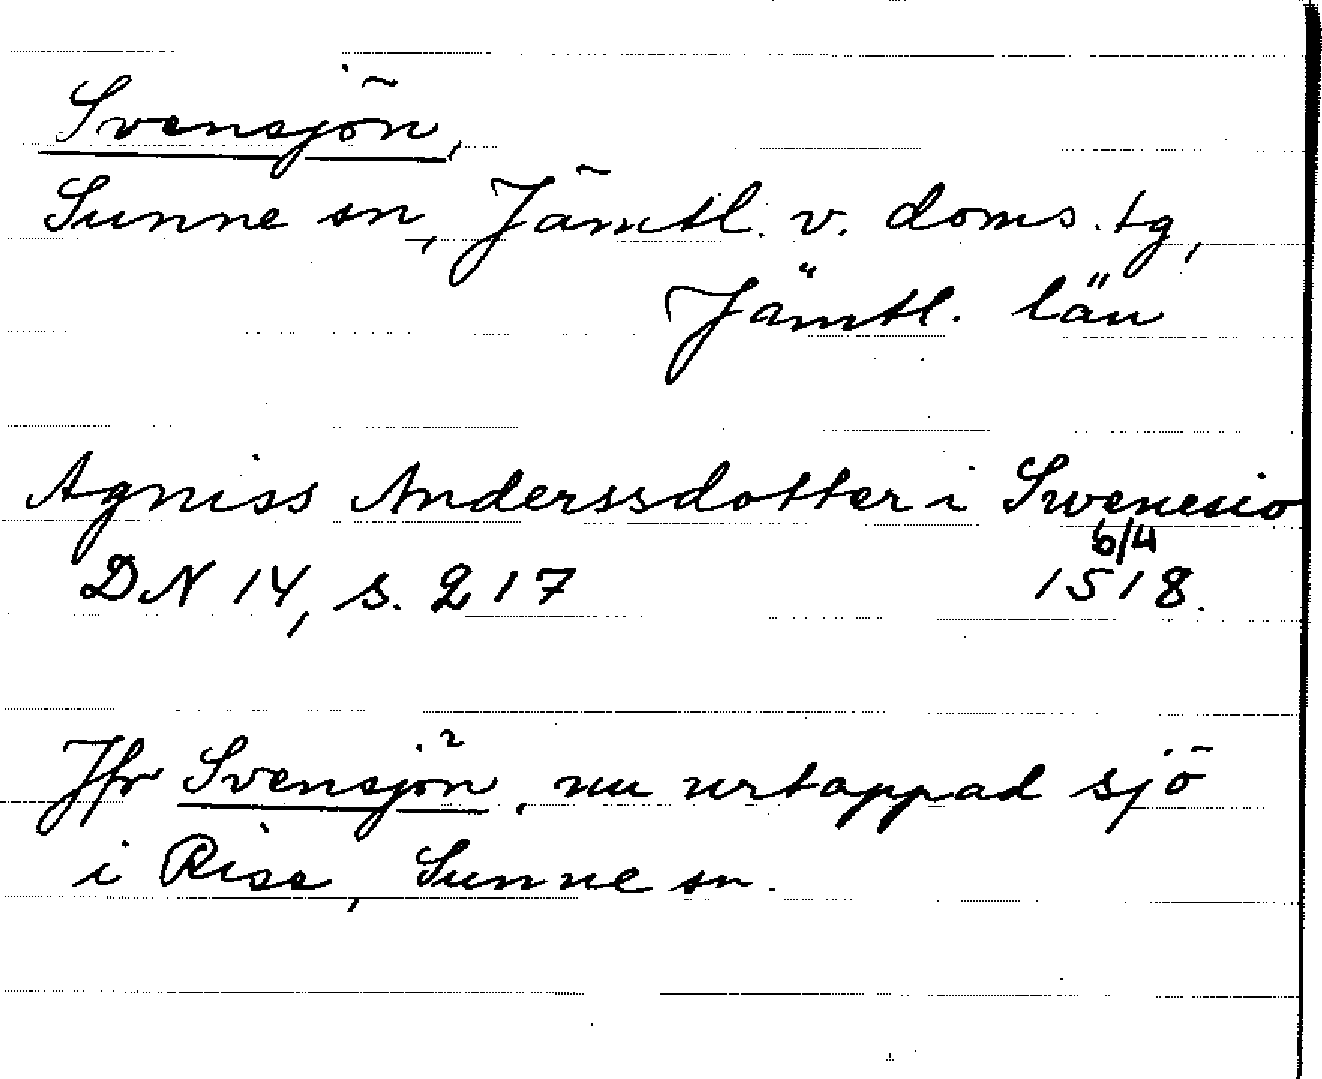 Svensjön,
Sunne sn, Jämtl. v. doms. tg,
Jämtl. län
Agniss Anderssdotter i Swenesio
6/4
DN 14, s. 217 1518.
Jfr Svensjön, nu urtappad sjö
i Rise, Sunne sn.